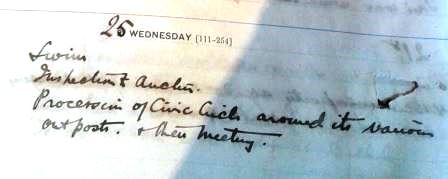 25 WEDNESDAY (111-254)
Swim
Inspection & Auction.
Procession of Civic Circle around its various
outposts. & then meeting.